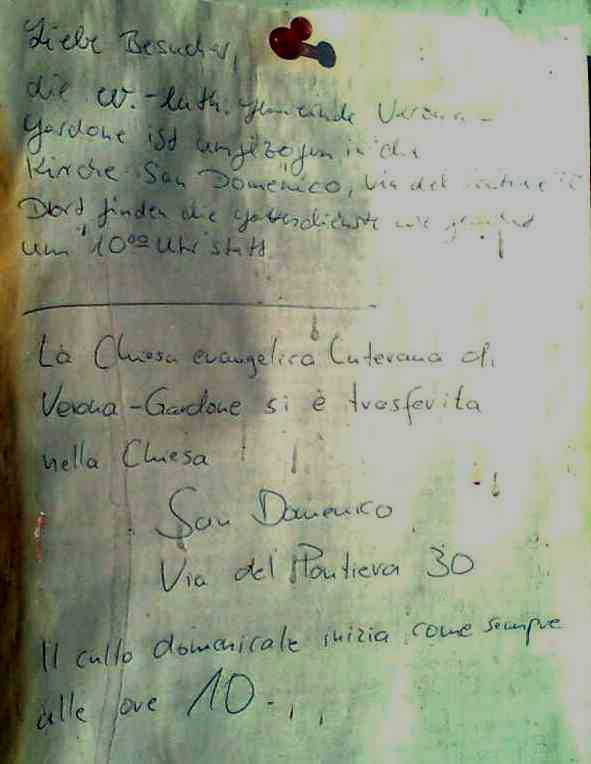 Liebe Besucher,
die ev.-luth. Gemeinde Verona-
Gardone ist umgezogen in die
Kirche San Domenico, Via del
Dort finden die Gottesdienste wie gewohnt
um 10⁰⁰ Uhr statt
La Chiesa evangelica Luterana di
Verona-Gardone si è trasferita
nella Chiesa
San Domenico
Via del Pontiera 30
Il culto domenicale inizia come sempre
alle ore 10.